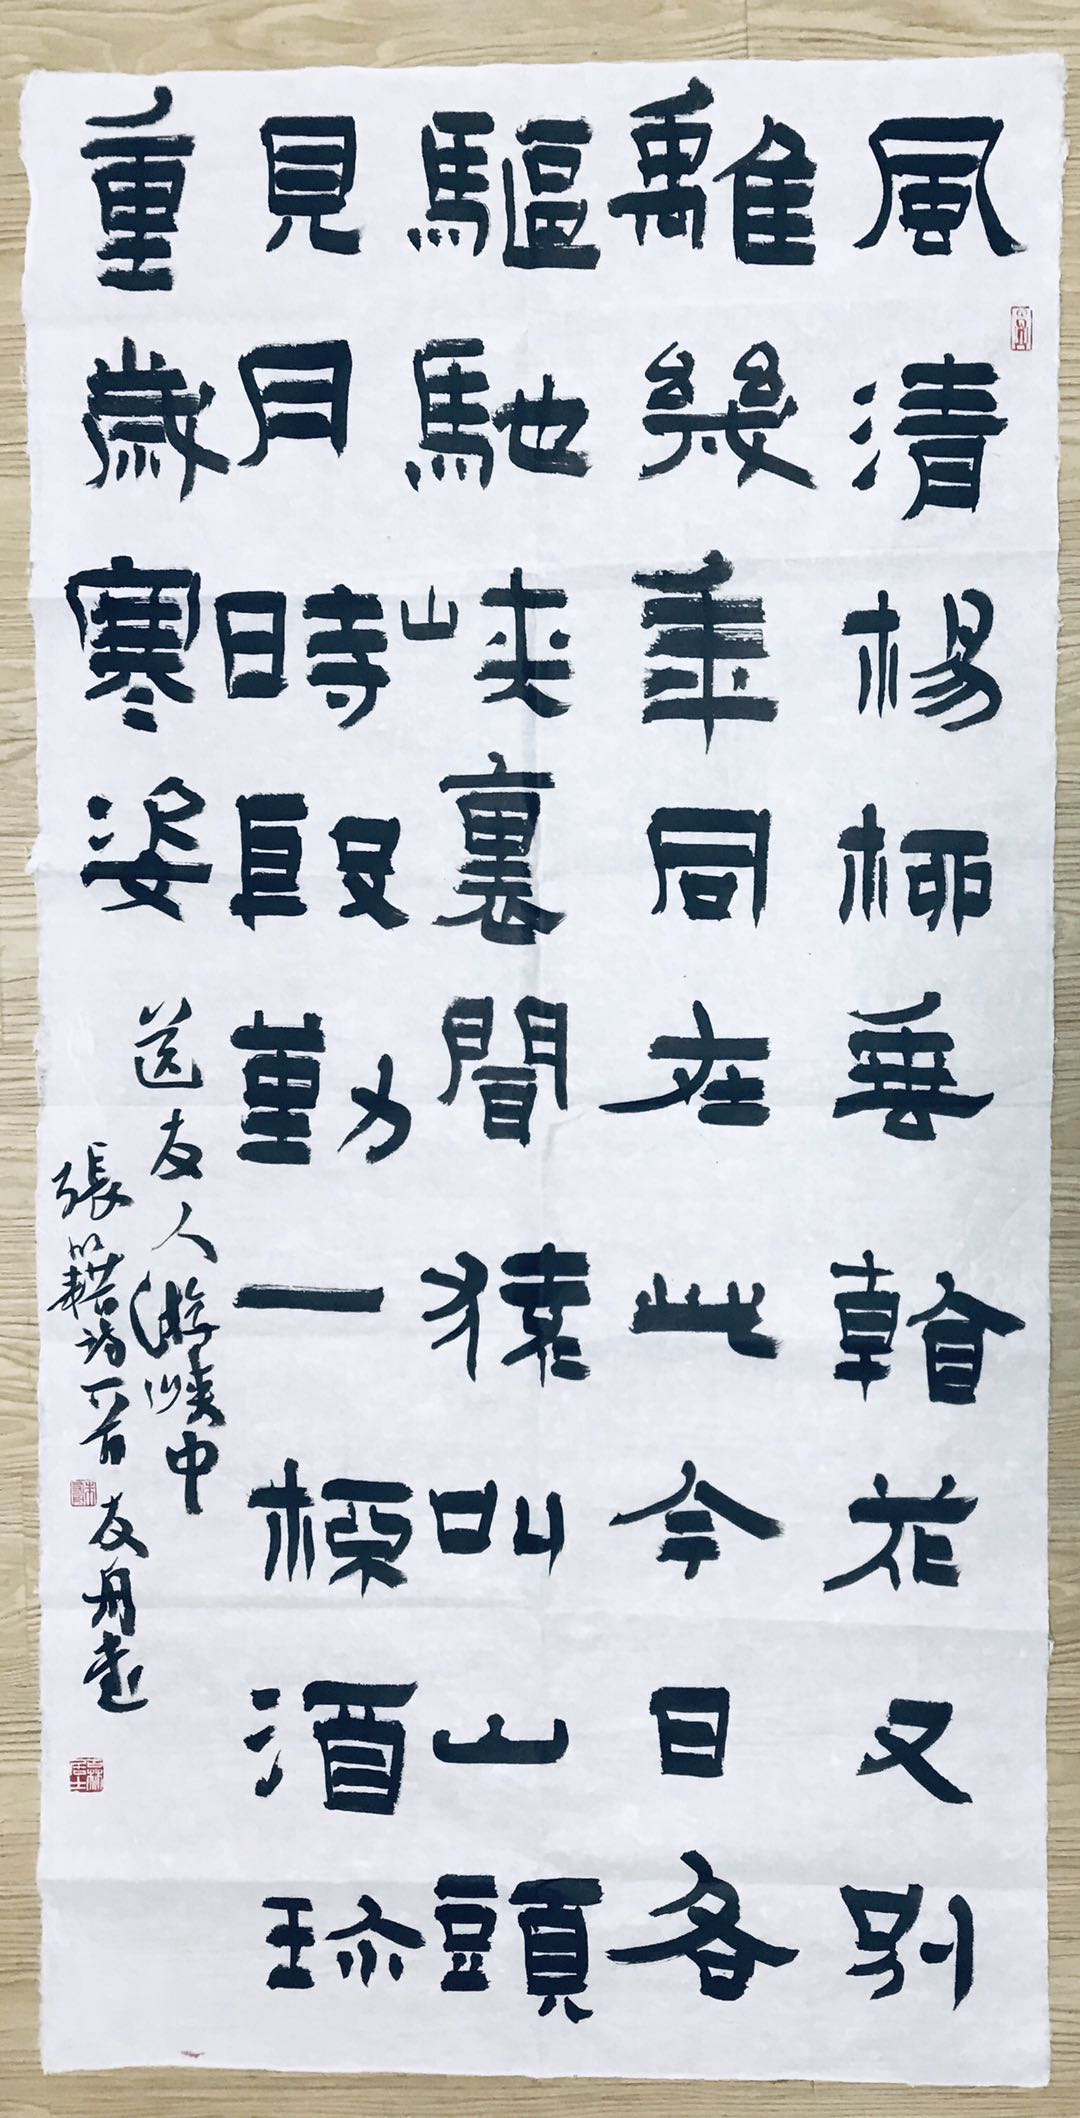 風清楊柳垂䪿花又別
離幾年同在此今日各
驅馳峽裏聞猿叫山頭
見月時殷勤一桮酒珎
重歲寒姿
送友人游峽中
張籍詩一首 友舟書